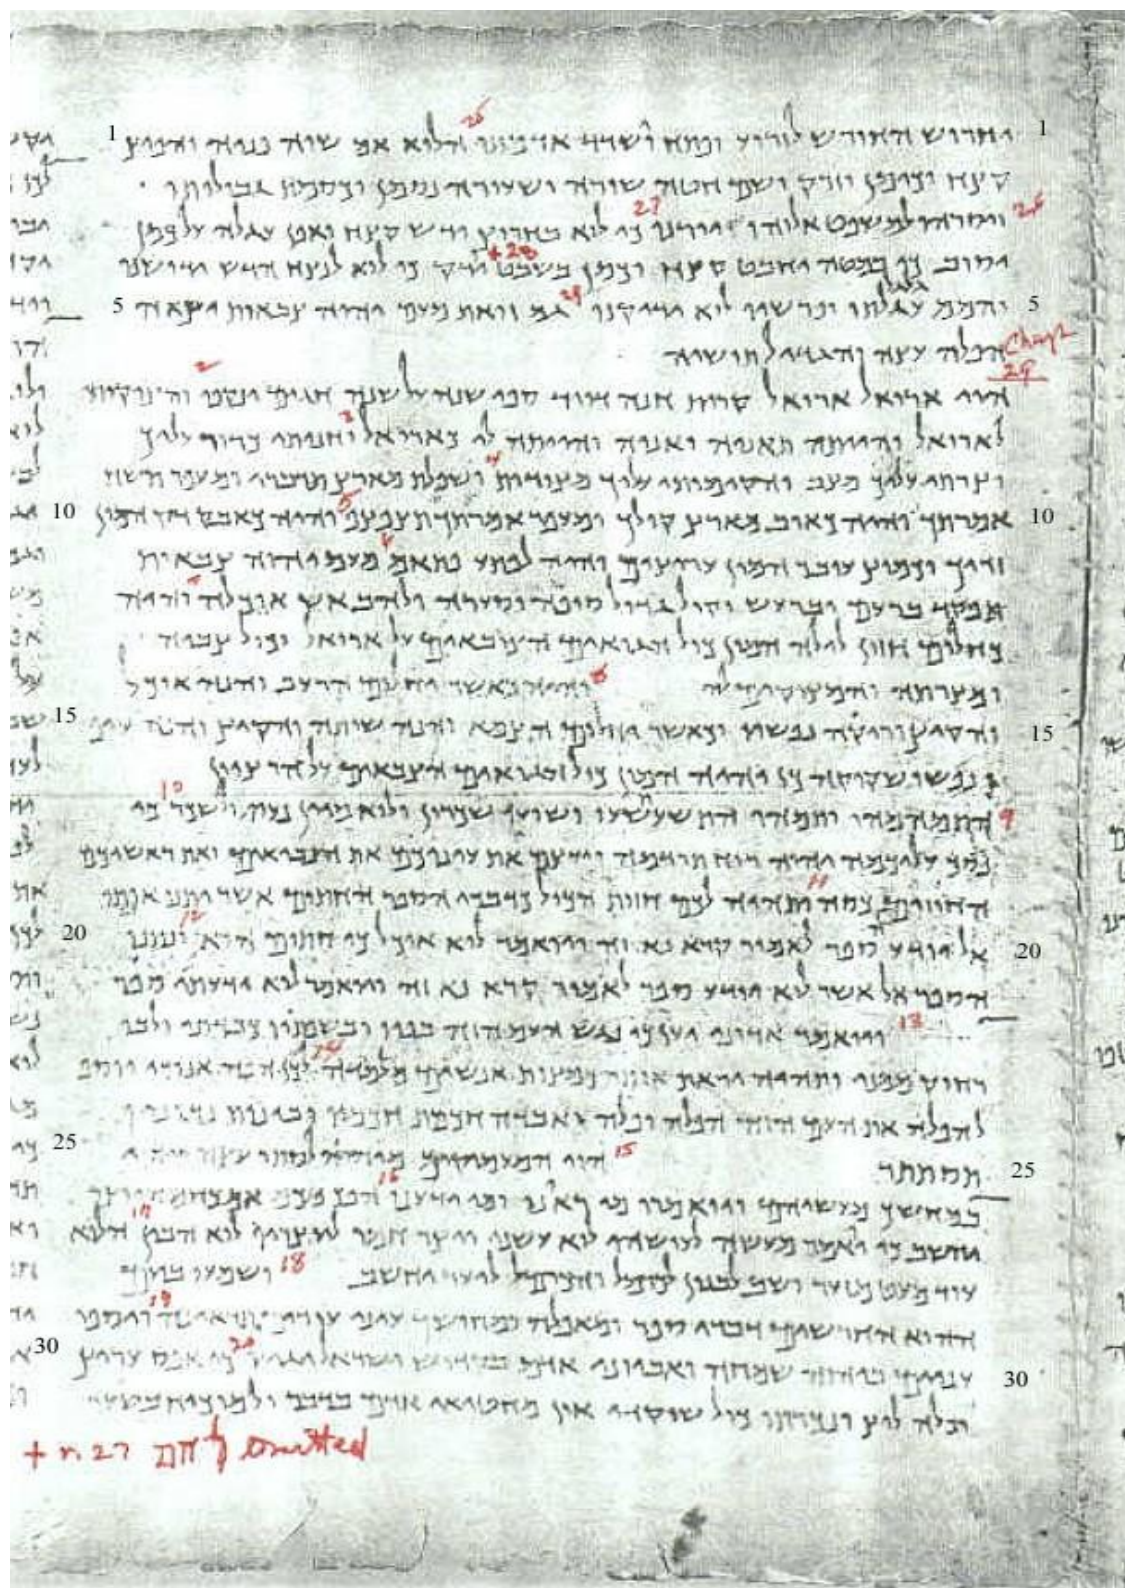 1 יחרוש החורש לזרוע ופתח וישדד אדמתו 25 הלוא אם שוה פניה והפיץ 1
קצח וכומן יזרק ושם חטה שורה ושעורה נסמן וכסמת גבולותו
26 ויסרהו למשפט אלוהו יורנו 27 כי לוא בחרוץ ידש קצח ואפן עגלה על כמן
יסוב כי במטה יחבט קצח וכמן בשבט +28 יודק כי לוא לנצח הדש ידושנו
5 והמם גלגל עגלתו ופרשיו לוא ידוקנו 29 גם זואת מעם יהוה צבאות יצאה 5
הפלה עצה והגדיל תושיה
Chapt 29
הוי אריאל אריאל קרית חנה דויד ספי שנה על שנה חגים ינקפו 2 והציקותי
לאריאל והייתה תאניה ואניה והייתה לי כאריאל 3 וחניתי כדור עליך
וצרתי עליך מצב והקימותי עליך מצורות 4 ושפלת מארץ תדברי ומעפר תשח
10 אמרתך והיה כאוב מארץ קולך ומעפר אמרתך תצפצף 5 והיה כאבק דק המון 10
זדיך וכמוץ עובר המון עריצים והיה לפתע פתאם 6 מעם יהוה צבאות
תפקד ברעם וברעש וקול גדול סופה וסערה ולהב אש אוכלה 7 והיה
כחלום חזון לילה המון כול הגואים הצובאים על אריאל וכול צביה
ומצרתה והמציקים לה 8 והיה כאשר יחלום הרעב והנה אוכל
15 והקיץ וריקה נפשו וכאשר יחלום הצמא והנה שותה והקיץ והנה עיף 15
ונפשו שקוקה כן יהיה המון כול הגואים הצבאים על הר ציון
9 התמהמהו ותמהו התשעשעו ושועו שכרון ולוא מיין נעו ולוא שכר 10 כי
נסך עליכמה יהוה רוח תרדמה ויעצם את עיניכם את הנביאים ואת ראשיכם
החוזים כסה 11 ותהיה לכם חזות הכול כדברי הספר החתום אשר יתנו אותו
20 אל יודע הספר לאמור קרא נא זה ויואמר לוא אוכל כי חתום הוא 12 ונתנו 20
הספר אל אשר לוא יודע ספר לאמור קרא נא זה ויואמר לוא ידעתי ספר
13 ויואמר אדוני יען כי נגש העם הזה בפיו ובשפתיו כבדני ולבו
רחוק ממני ותהיה יראת אותי כמצות אנשים מלמדה 14 לכן הנה אנוכי יוסיף
להפלה את העם הזה הפלה ופלה ואבדה חכמת חכמיו ובינות נבוניו
25 תסתתר 15 הוי המעמיקים מיהוה לסתר עצה ויהיה 25
במחשך מעשיהם ויואמרו מי ראנו ומי ידענו 16 הפך מכם אם כחמר היוצר
יחשב כי יאמר מעשה לעושהו לוא עשני ויצר אמר ליוצרו לוא הבין 17 הלוא
עוד מעט מזער ושב לבנון לכרמל והכרמל ליער יחשב 18 ושמעו ביום
ההוא החרשים דברי ספר ומאפלה ומחושך עיני עורים תראינה 19 ויספו
30 ענוים ביהוה שמחה ואביוני אדם בקדוש ישראל יגילו 20 כי אפס עריץ 30
וכלה לץ ונכרתו כול שוקדי און מחטיאי אדם בדבר ולמוכיח בשער
+ n. 27 להם omitted